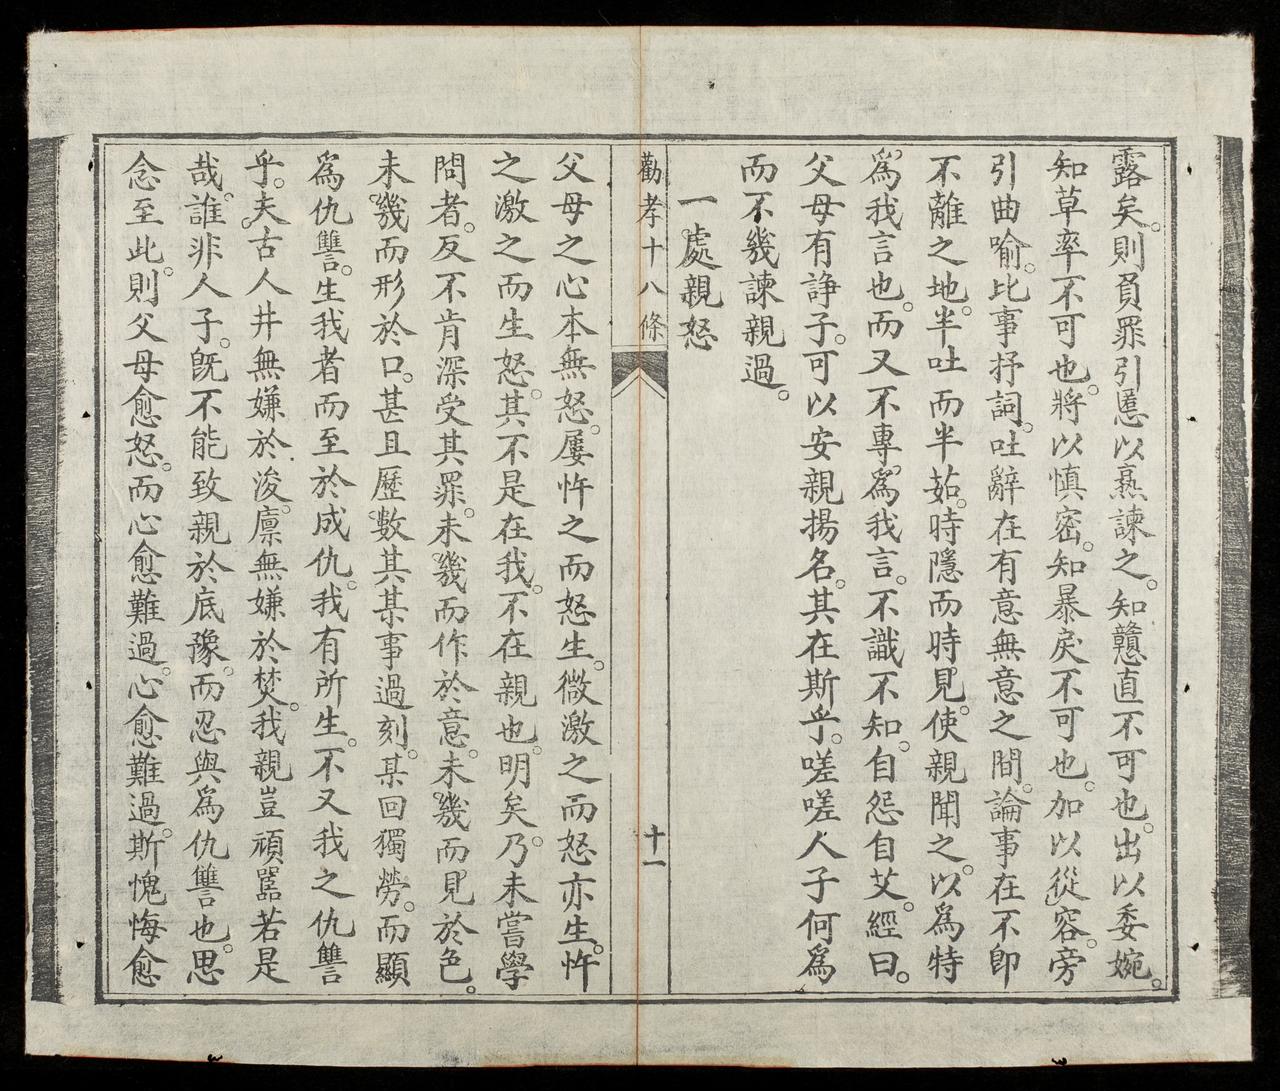 露矣。則負罪引慝以熟諫之。知戇直不可也。出以委婉。
知草率不可也。將以慎密。知暴戾不可也。加以從容。旁
引曲喻。比事抒詞。吐辭在有意無意之間。論事在不即
不離之地。半吐而半茹。時隱而時見。使親聞之。以為特
為我言也。而又不專為我言。不識不知。自怨自艾。經曰。
父母有諍子。可以安親揚名。其在斯乎。嗟嗟人子何為
而不幾諫親過。
一處親怒
勸孝十八條
十一
父母之心本無怒。屢忤之而怒生。微激之而怒亦生。忤
之激之而生怒。其不是在我。不在親也。明矣。乃未嘗學
問者。反不肯深受其罪。未幾而作於意。未幾而見於色。
未幾而形於口。甚且歷數其某事過刻。某回獨勞。而顯
為仇讐。生我者而至於成仇。我有所生。不又我之仇讐
乎。夫古人井無嫌於浚。廪無嫌於焚。我親豈頑嚚若是
哉。誰非人子。既不能致親於底豫。而忍與為仇讐也。思
念至此。則父母愈怒。而心愈難過。心愈難過。斯愧悔愈